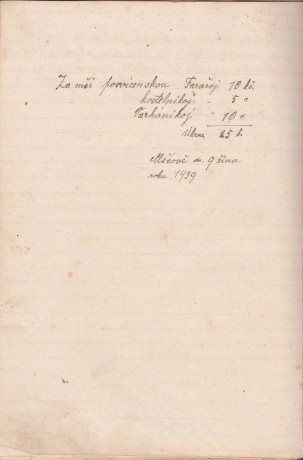 Za mši posvícenskou Farařoj 10 kč.
kostelnikoj " 5 "
Varhánikoj " 10 "
Úhrně 25 k.
Mečově d. 9 října
roku 1939